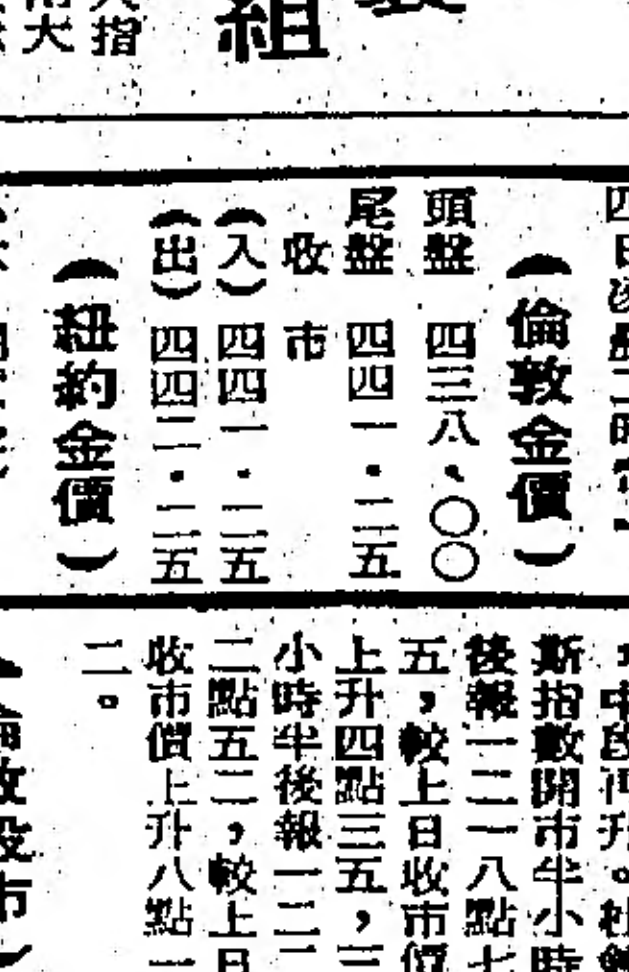 組
指
大
（倫敦金價）
頭盤 四三八．〇〇
尾盤 四四一．二五
收市
（入）四四一．二五
（出）四四二．二五
（紐約金價）
，中段再升。
斯指數開市半小時
後報一二一八點七
五，較上日收市價
上升四點三五，三
小時半後報一二二
二點五二，較上日
收市價上升八點一
二。
敦股市）